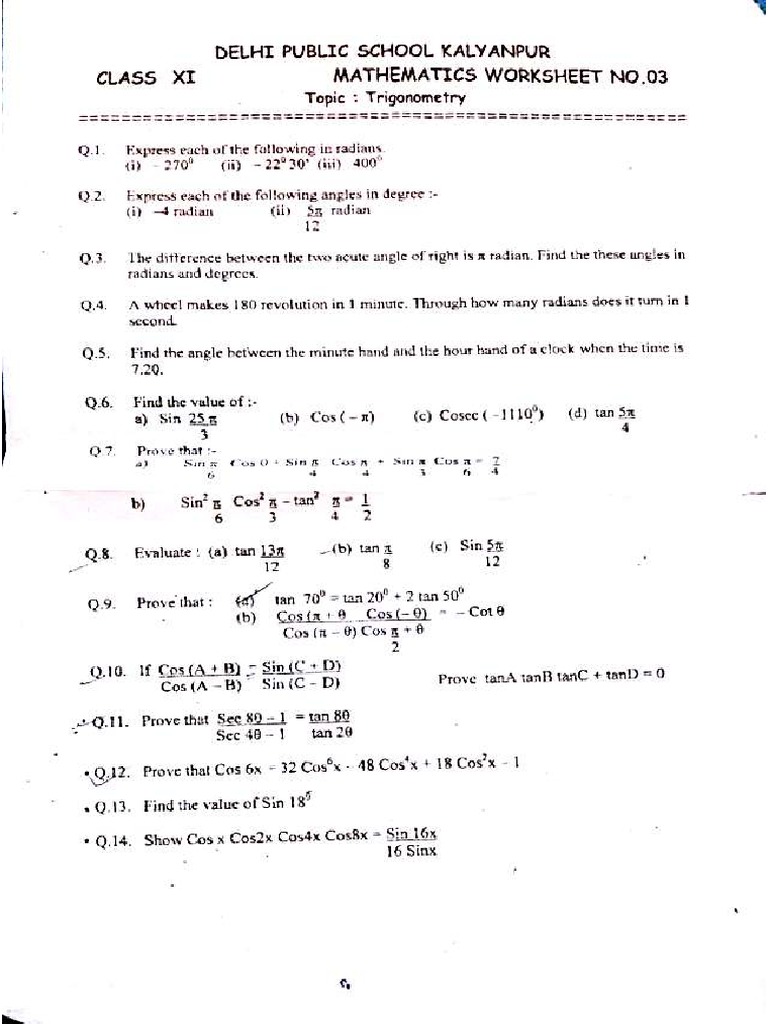 DELHI PUBLIC SCHOOL KALYANPUR
CLASS XI MATHEMATICS WORKSHEET NO.03
Topic : Trigonometry
Q.1. Express each of the following in radians.
(i) - 270⁰ (ii) - 22⁰ 30' (iii) 400⁰
Q.2. Express each of the following angles in degree :-
(i) -4 radian (ii) 5π radian
12
Q.3. The difference between the two acute angle of right is π radian. Find the these angles in
radians and degrees.
Q.4. A wheel makes 180 revolution in 1 minute. Through how many radians does it turn in 1
second.
Q.5. Find the angle between the minute hand and the hour hand of a clock when the time is
7.20.
Q.6. Find the value of :-
a) Sin 25 π (b) Cos ( – π) (c) Cosec ( -1110⁰) (d) tan 5π
3 4
Q 7. Prove that :-
a) Sin π Cos 0 + Sin π Cos π + Sin π Cos π = 7
6 4 4 3 6 4
b) Sin² π Cos² π – tan² π = 1
6 3 4 2
Q.8. Evaluate : (a) tan 13π (b) tan π (c) Sin 5π
12 8 12
Q.9. Prove that : (a) tan 70⁰ = tan 20⁰ + 2 tan 50⁰
(b) Cos (π + θ Cos (– θ) = – Cot θ
Cos (π – θ) Cos π + θ
2
Q.10. If Cos (A + B) = Sin (C + D)
Cos (A – B) Sin (C – D) Prove tanA tanB tanC + tanD = 0
Q.11. Prove that Sec 8θ – 1 = tan 8θ
Sec 4θ – 1 tan 2θ
Q.12. Prove that Cos 6x = 32 Cos⁶x - 48 Cos⁴x + 18 Cos²x - 1
Q.13. Find the value of Sin 18⁰
Q.14. Show Cos x Cos2x Cos4x Cos8x = Sin 16x
16 Sinx